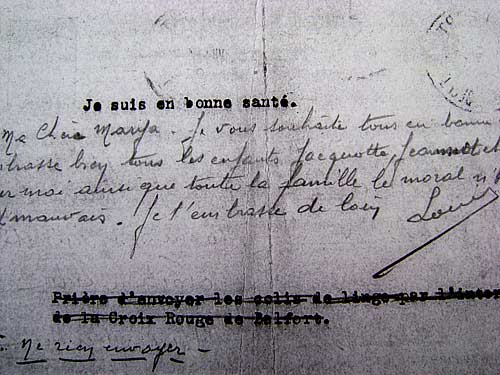 Je suis en bonne santé.
Ma Chère Marya. Je vous souhaite tous en bonne
brasse bien tous les enfants Jacquotte, Jeannot et
moi ainsi que toute la famille le moral n'
mauvais. Je t'embrasse de loin Louis
Prière d'envoyer les colis de linge par l'inter
de la Croix Rouge de Belfort.
Ne rien envoyer -